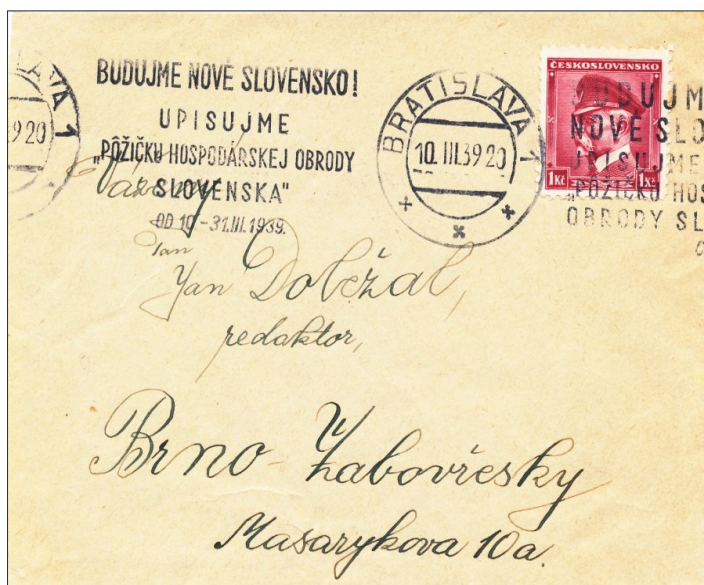 BRATISLAVA 1
10.III.39 20
BUDUJME NOVÉ SLOVENSKO!
UPISUJME
„PÔŽIČKU HOSPODÁRSKEJ OBRODY
SLOVENSKA"
OD 10.-31.III.1939.
AVA 1
39 20
ČESKOSLOVENSKO
1Kč 1Kč
BUDUJM
NOVÉ SLO
UPISUJME
„PÔŽIČKU HOS
OBRODY SL
O
Vážený
Pan
Jan Doležal,
redaktor,
Brno - Žabovřesky
Masarykova 10a.